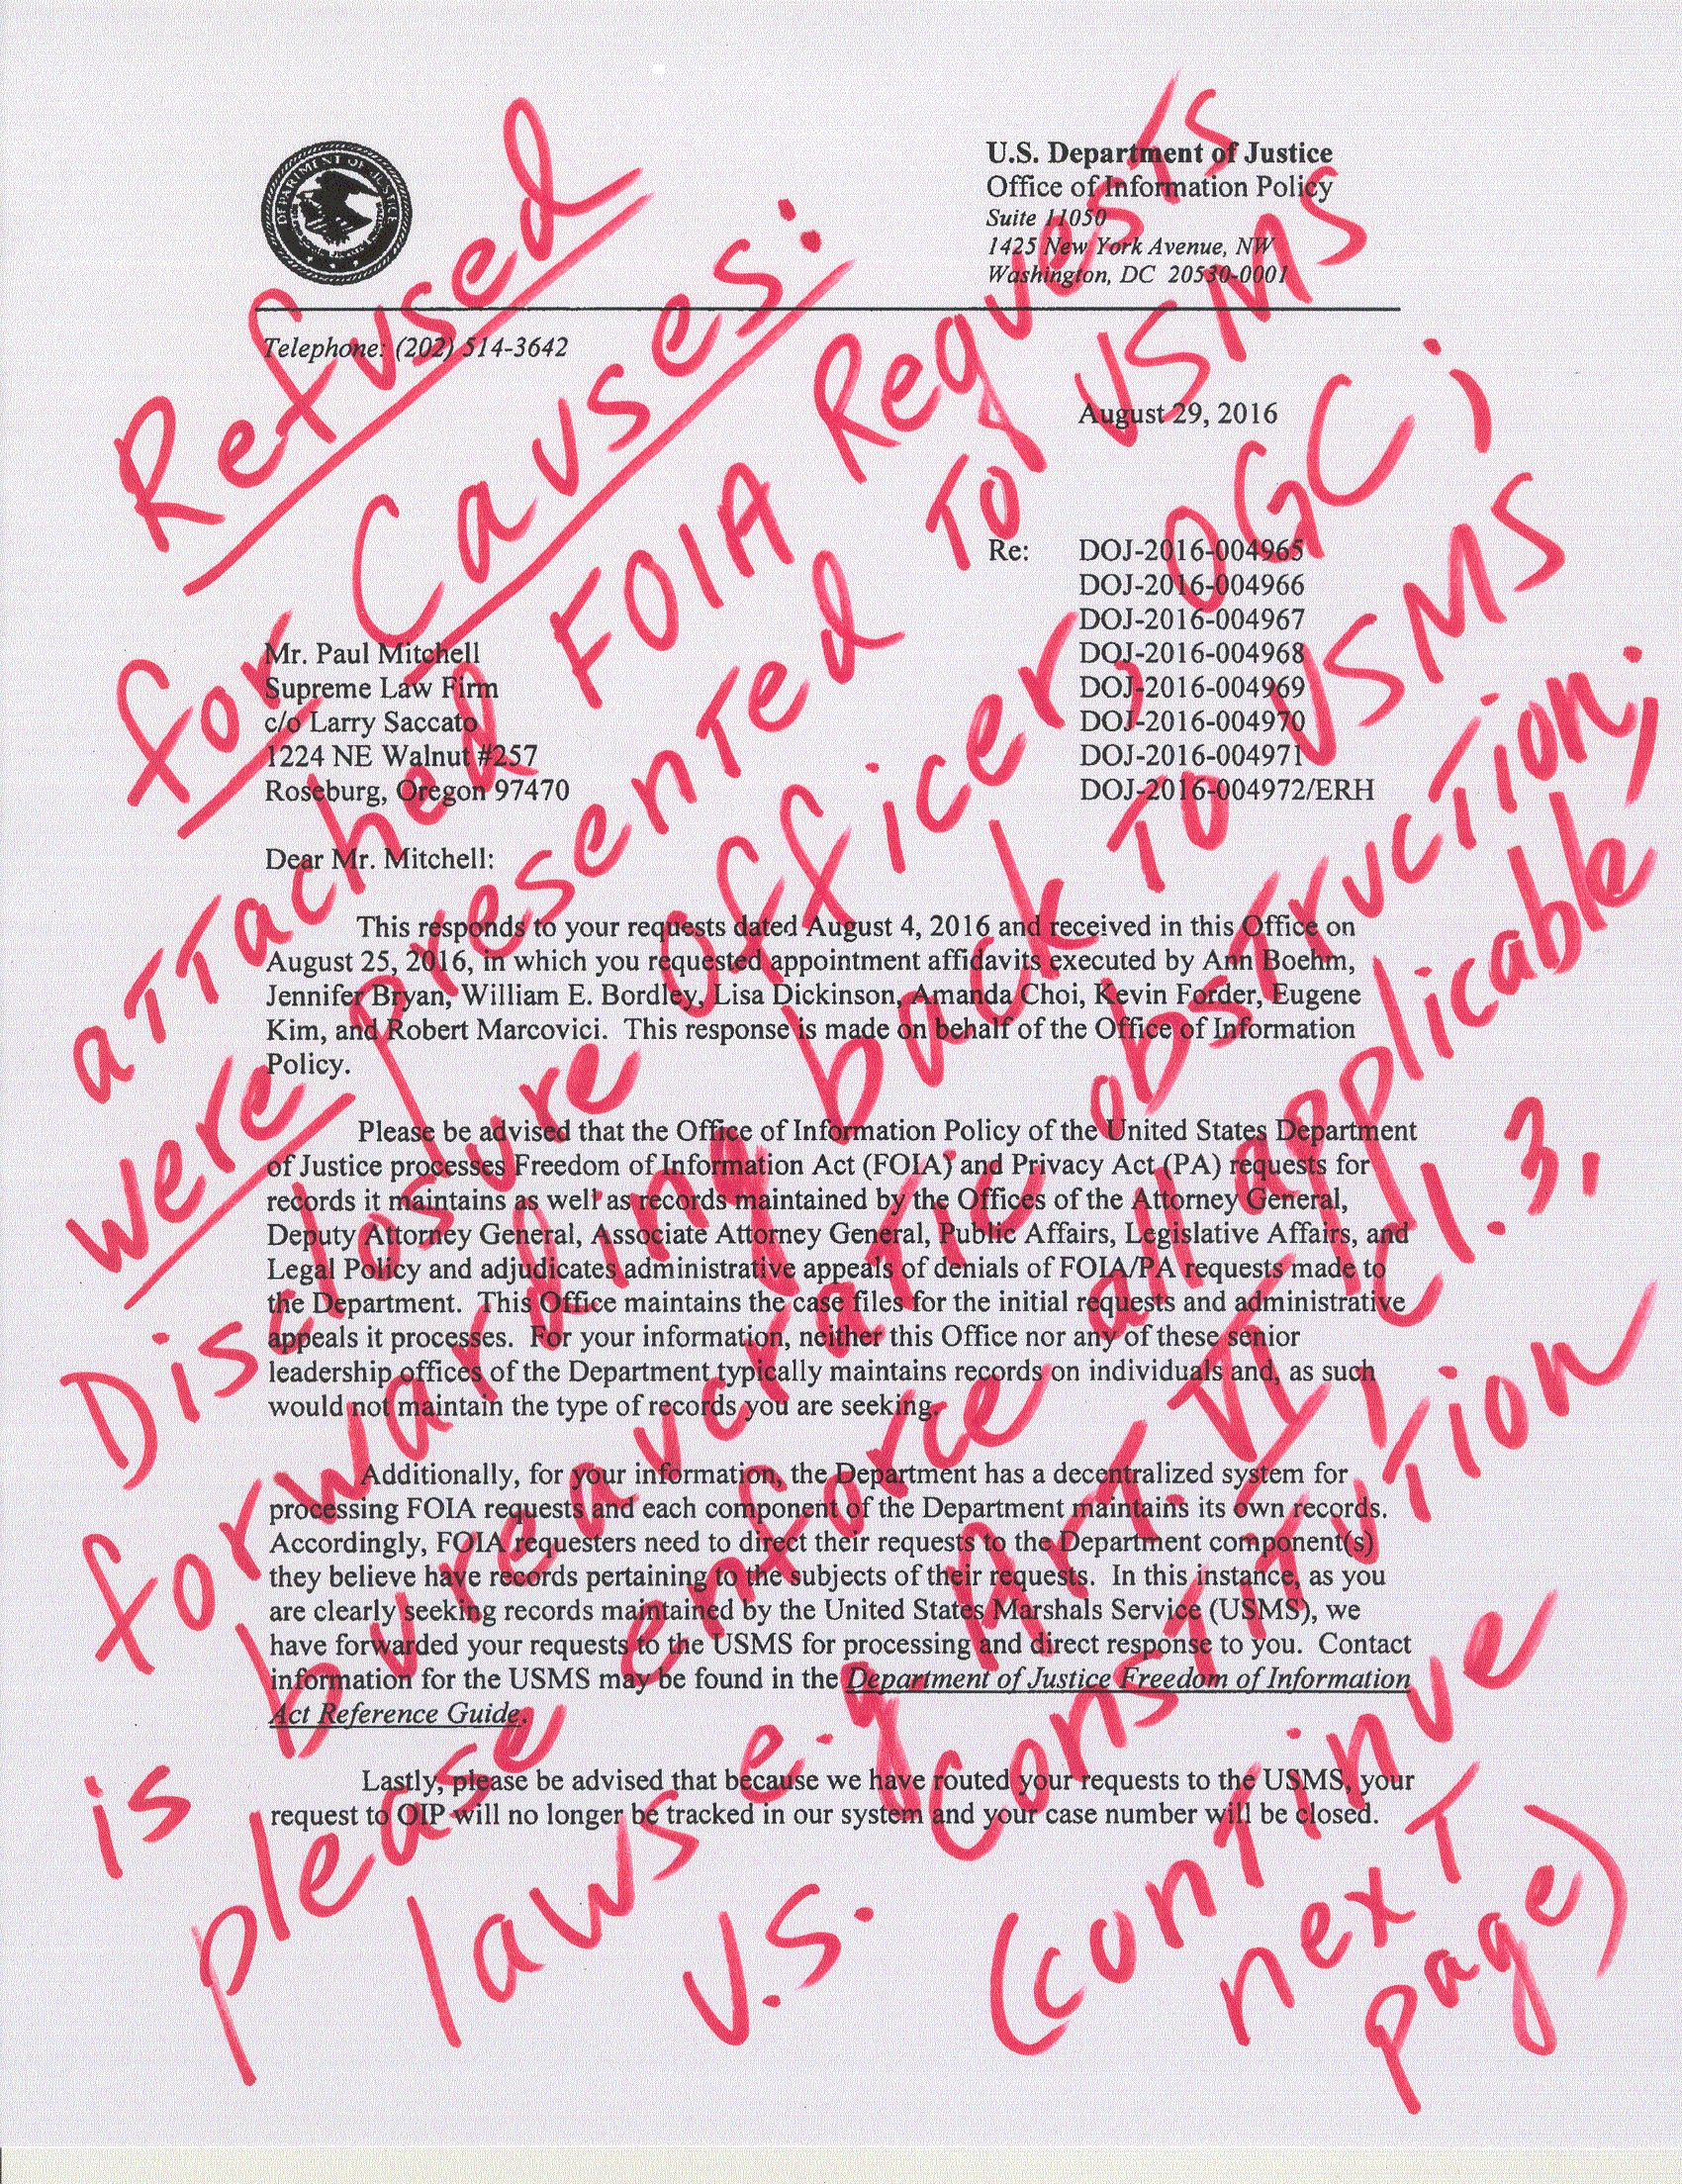 U.S. Department of Justice
Office of Information Policy
Suite 11050
1425 New York Avenue, NW
Washington, DC 20530-0001
Telephone: (202) 514-3642
August 29, 2016
Re: DOJ-2016-004965
DOJ-2016-004966
DOJ-2016-004967
DOJ-2016-004968
DOJ-2016-004969
DOJ-2016-004970
DOJ-2016-004971
DOJ-2016-004972/ERH
Mr. Paul Mitchell
Supreme Law Firm
c/o Larry Saccato
1224 NE Walnut #257
Roseburg, Oregon 97470
Dear Mr. Mitchell:
This responds to your requests dated August 4, 2016 and received in this Office on
August 25, 2016, in which you requested appointment affidavits executed by Ann Boehm,
Jennifer Bryan, William E. Bordley, Lisa Dickinson, Amanda Choi, Kevin Forder, Eugene
Kim, and Robert Marcovici. This response is made on behalf of the Office of Information
Policy.
Please be advised that the Office of Information Policy of the United States Department
of Justice processes Freedom of Information Act (FOIA) and Privacy Act (PA) requests for
records it maintains as well as records maintained by the Offices of the Attorney General,
Deputy Attorney General, Associate Attorney General, Public Affairs, Legislative Affairs, and
Legal Policy and adjudicates administrative appeals of denials of FOIA/PA requests made to
the Department. This Office maintains the case files for the initial requests and administrative
appeals it processes. For your information, neither this Office nor any of these senior
leadership offices of the Department typically maintains records on individuals and, as such
would not maintain the type of records you are seeking.
Additionally, for your information, the Department has a decentralized system for
processing FOIA requests and each component of the Department maintains its own records.
Accordingly, FOIA requesters need to direct their requests to the Department component(s)
they believe have records pertaining to the subjects of their requests. In this instance, as you
are clearly seeking records maintained by the United States Marshals Service (USMS), we
have forwarded your requests to the USMS for processing and direct response to you. Contact
information for the USMS may be found in the Department of Justice Freedom of Information
Act Reference Guide.
Lastly, please be advised that because we have routed your requests to the USMS, your
request to OIP will no longer be tracked in our system and your case number will be closed.
Refused
for Causes:
attached FOIA Requests
were Presented To USMS
Disclosure officer, OGC;
forwarding back To USMS
is bureaucratic obstruction;
please enforce all applicable
laws e.g. Art. VI, Cl. 3,
U.S. Constitution
(continue
next
page)